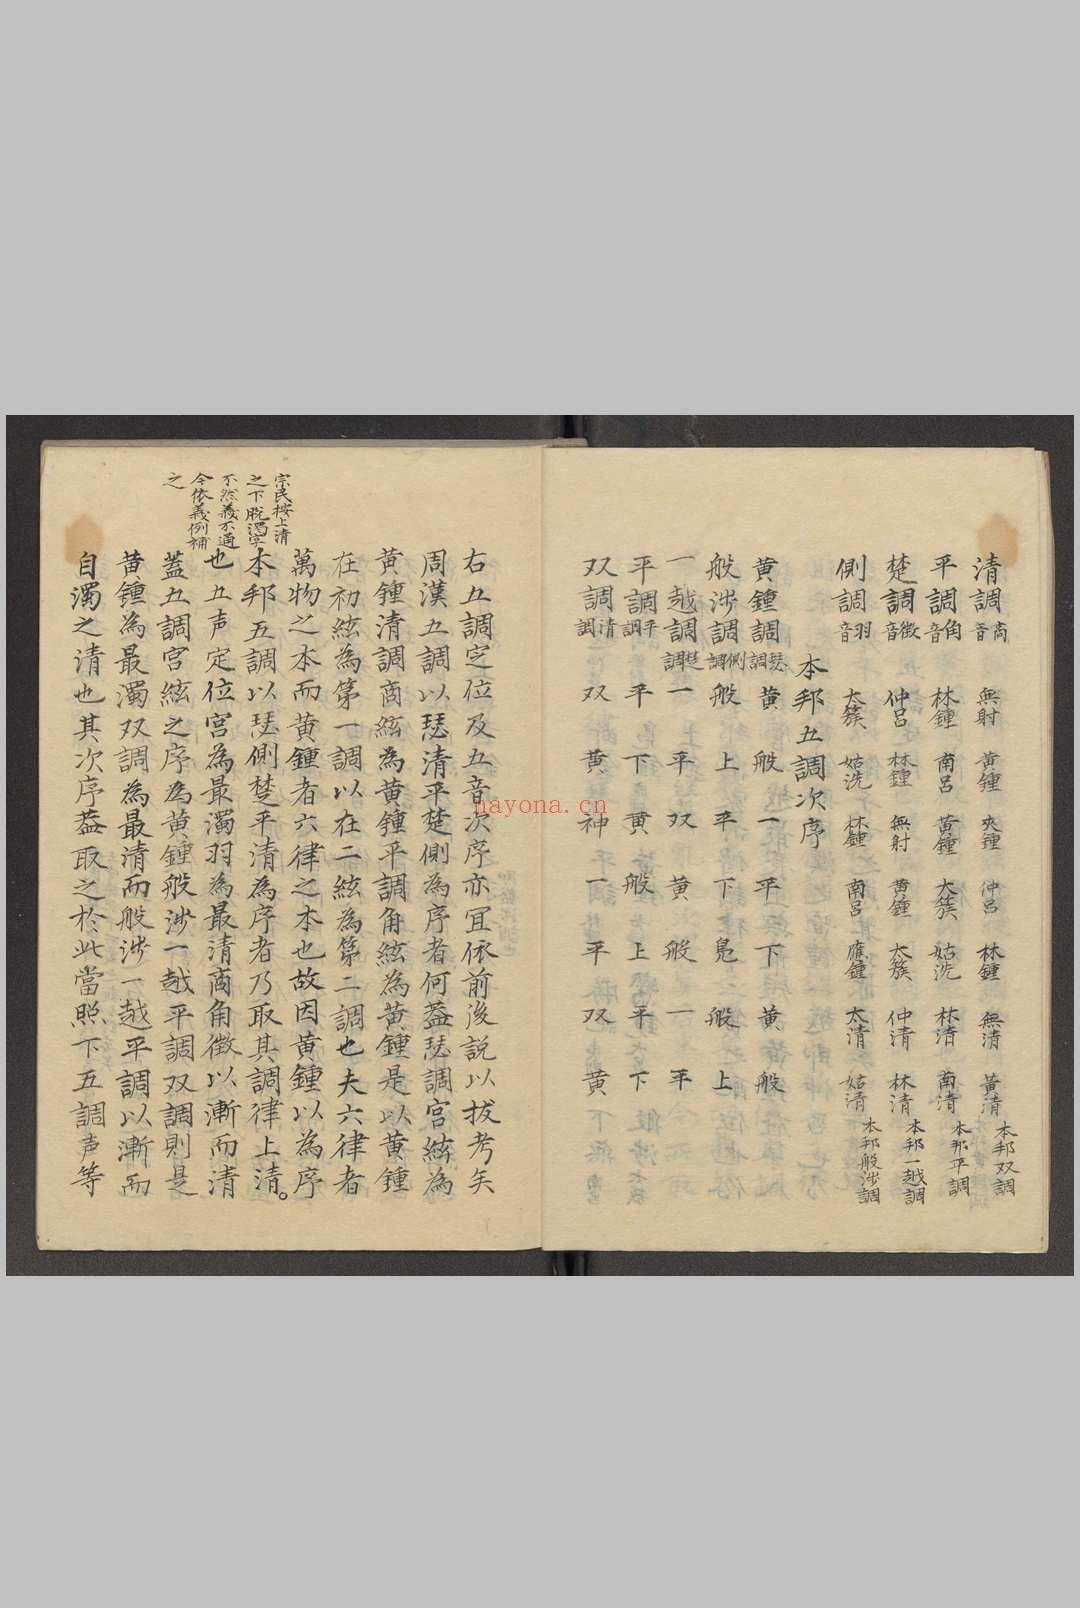 清調商音 無射 黃鍾 夾鍾 仲呂 林鍾 無清 黃清 本邦双調
平調角音 林鍾 南呂 黃鍾 大簇 姑洗 林清 南清 本邦平調
楚調徵音 仲呂 林鍾 無射 黃鍾 大簇 仲清 林清 本邦一越調
側調羽音 大簇 姑洗 林鍾 南呂 應鍾 太清 姑清 本邦般涉調
本邦五調次序
黃鍾調瑟調 黃 般 一 平 下 黃 般
般涉調側調 般 上 平 下 鳧 般 上
一越調楚調 一 平 双 黃 般 一 平
平調平調 平 下 黃 般 上 平 下
双調清調 双 黃 神 一 平 双 黃
右五調定位及五音次序亦冝依前後説以拔考矣
周漢五調以瑟清平楚側為序者何葢瑟調宮絃為
黃鍾清調商絃為黃鍾平調角絃為黃鍾是以黃鍾
在初絃為第一調以在二絃為第二調也夫六律者
萬物之本而黃鍾者六律之本也故因黃鍾以為序
本邦五調以瑟側楚平清為序者乃取其調律上清。
也五声定位宮為最濁羽為最清商角徵以漸而清
蓋五調宮絃之序為黃鍾般涉一越平調双調則是
黃鍾為最濁双調為最清而般涉一越平調以漸而
自濁之清也其次序葢取之於此當照下五調声等
宗民按上清
之下脫濁字
不然義不通
今依義例補
之
nayona.cn